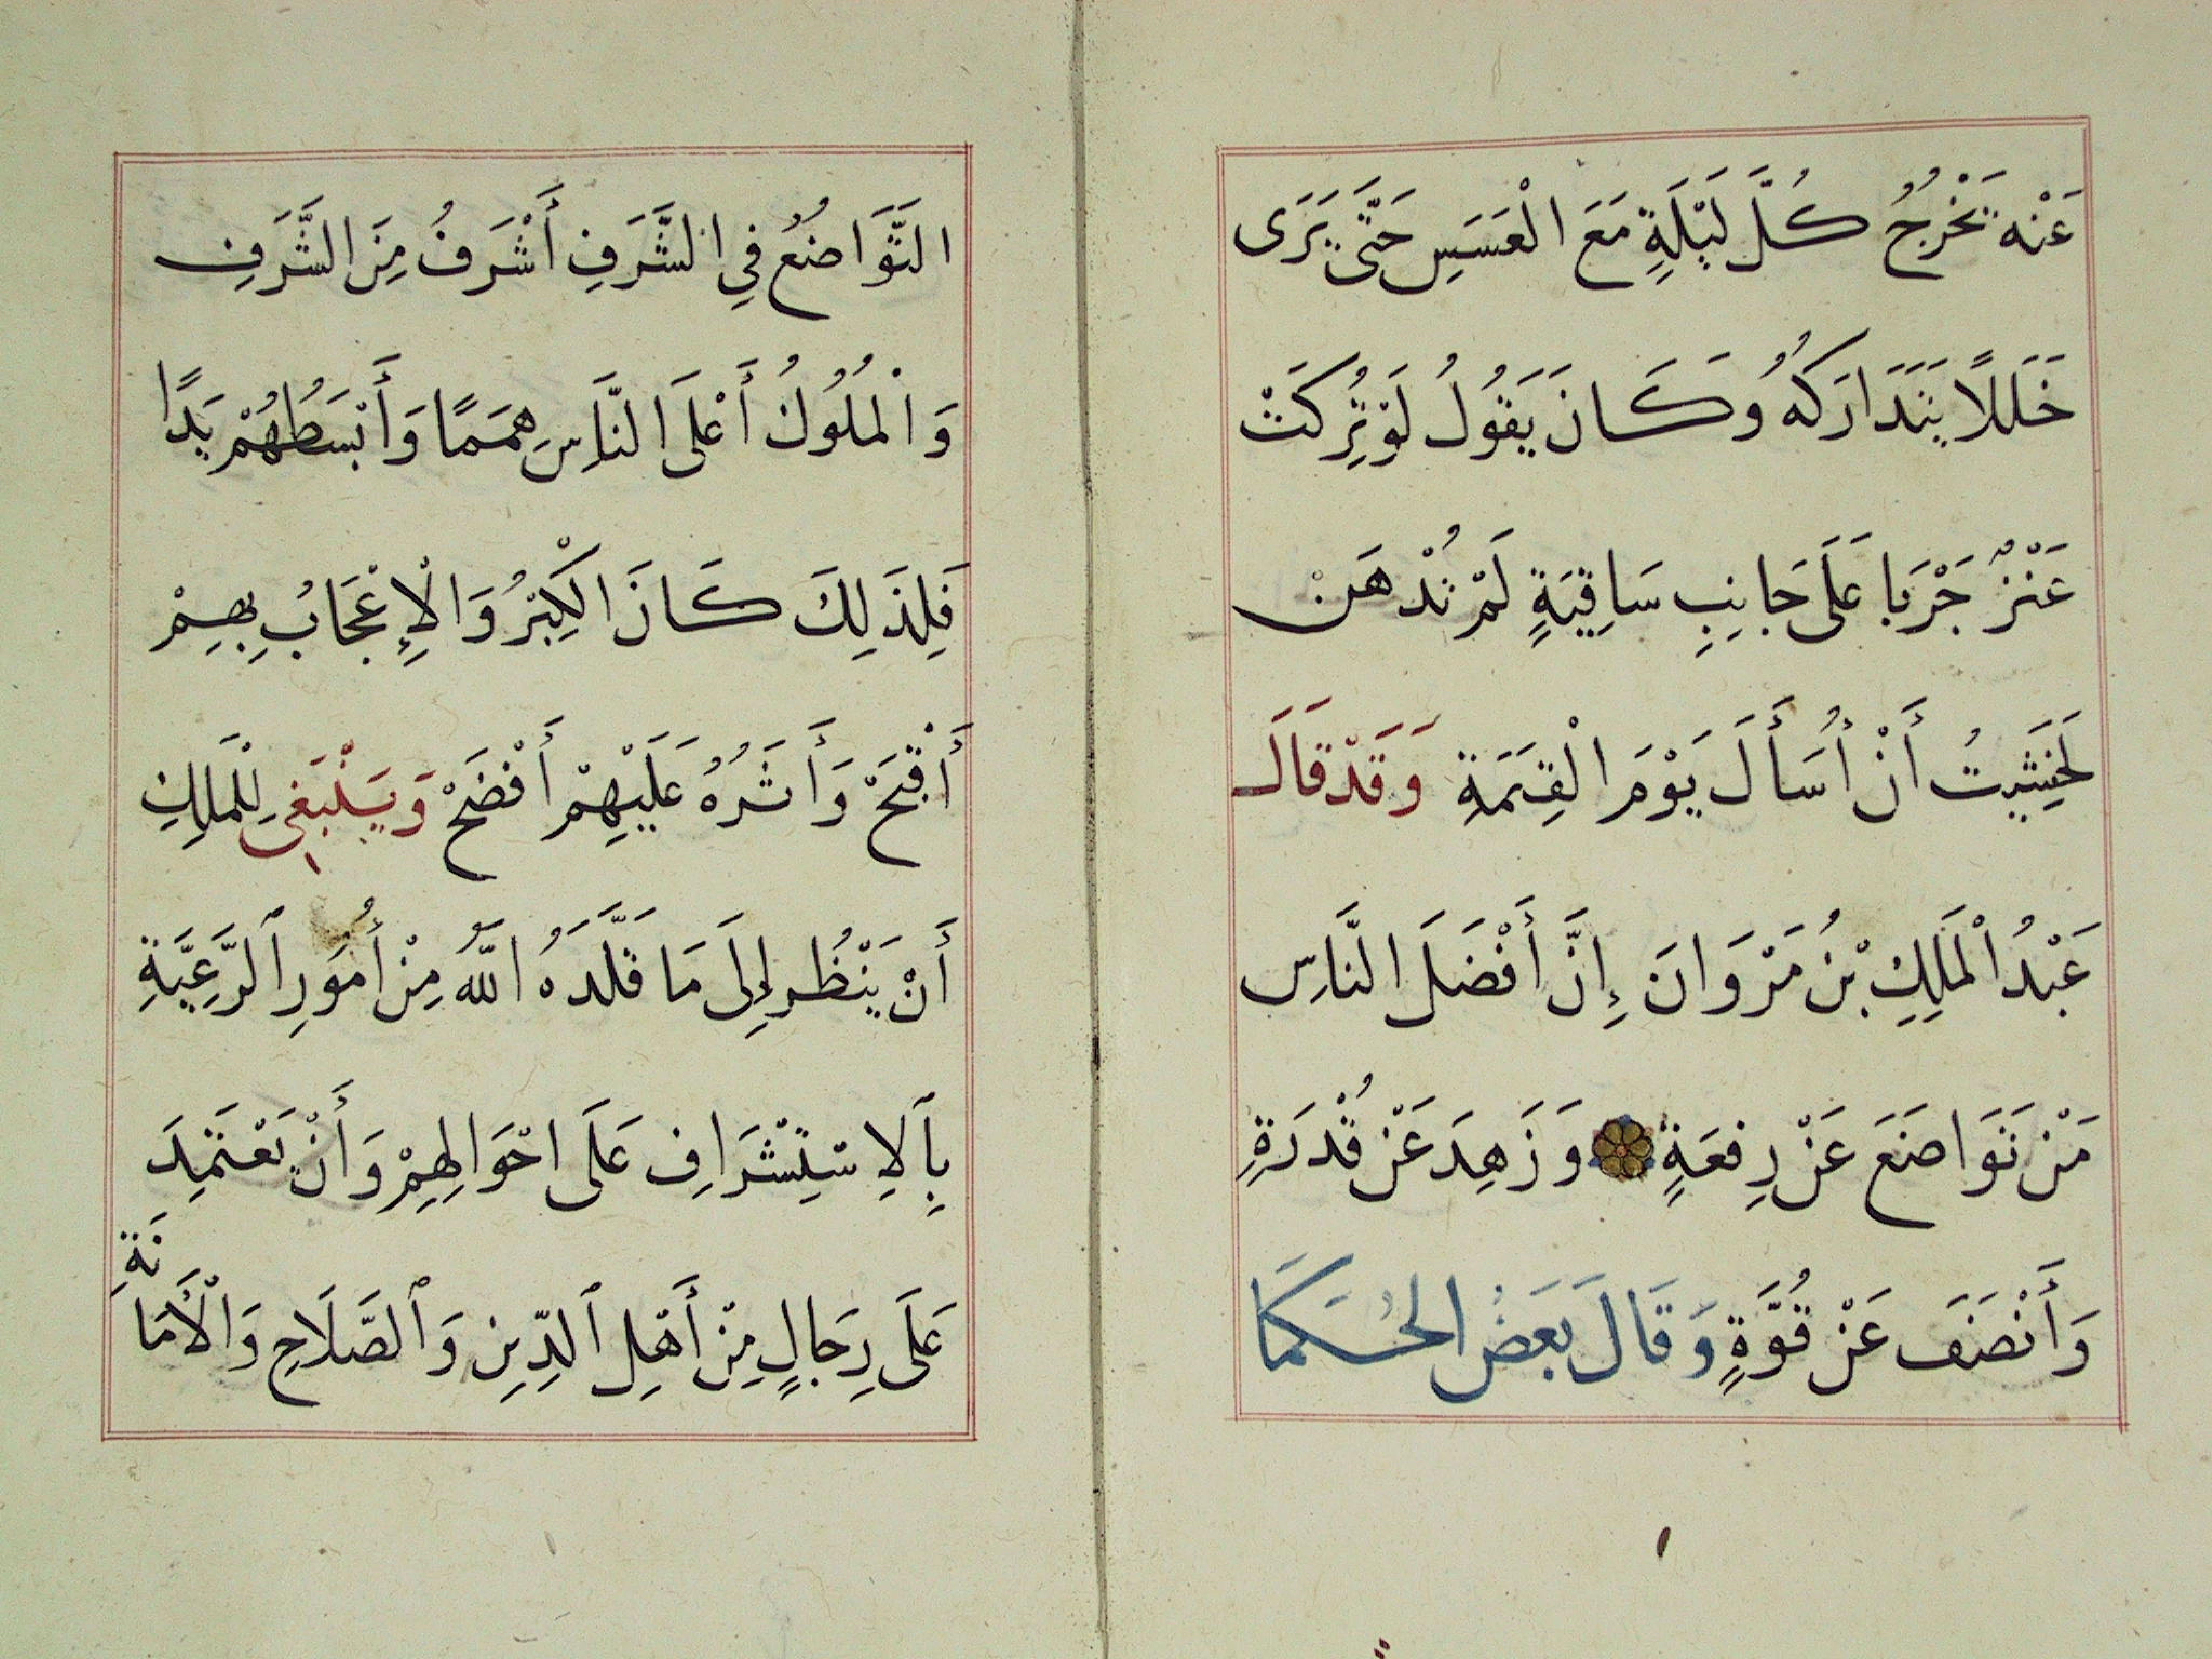 عَنْه يَخْرُجُ كُلَّ لَيْلَةٍ مَعَ الْعَسَسِ حَتَّى يَرَى
خَلَلًا يَتَدَارَكُهُ وَكَانَ يَقُولُ لَوْ تُرِكَتْ
عَنْزٌ جَرْبَا عَلَى جَانِبِ سَاقِيَةٍ لَمْ تُدْهَن
لَخَشِيتُ أَنْ أُسَأَلَ يَوْمَ الْقِيَمَةِ وَقَدْ قَالَ
عَبْدُ الْمَلِكِ بْنُ مَرْوَانَ إِنَّ أَفْضَلَ النَّاسِ
مَنْ تَوَاضَعَ عَنْ رِفعَةٍ وَزَهِدَ عَنْ قُدْرَةٍ
وَأَنْصَفَ عَنْ قُوَّةٍ وَقَالَ بَعَضُ الحُكَمَا
التَّوَاضُعُ فِي الشَّرَفِ أَشْرَفُ مِنَ الشَّرَفِ
وَالْمُلُوكُ أَعْلَى النَّاسِ هِمَمًا وَأَبْسَطُهُمْ يَدًا
فَلِذَلِكَ كَانَ الْكِبْرُ وَالْإِعْجَابُ بِهِمْ
أَقْبَحْ وَأَثَرُهُ عَلَيْهِمْ أَفْضَحْ وَيَنْبَغِي لِلْمَلِكِ
أَنْ يَنْظُر إِلَى مَا قَلَّدَهُ اللَّهُ مِنْ أُمَورِ ٱلرَّعِيَّةِ
بِٱلِاسْتِشْرَافِ عَلَى احْوَالِهِمْ وَأَنْ يَعْتَمِدَ
عَلَى رِجَالٍ مِنْ أَهْلِ ٱلدِّينِ وَٱلصَّلَاحِ وَالْأَمَانَةِ